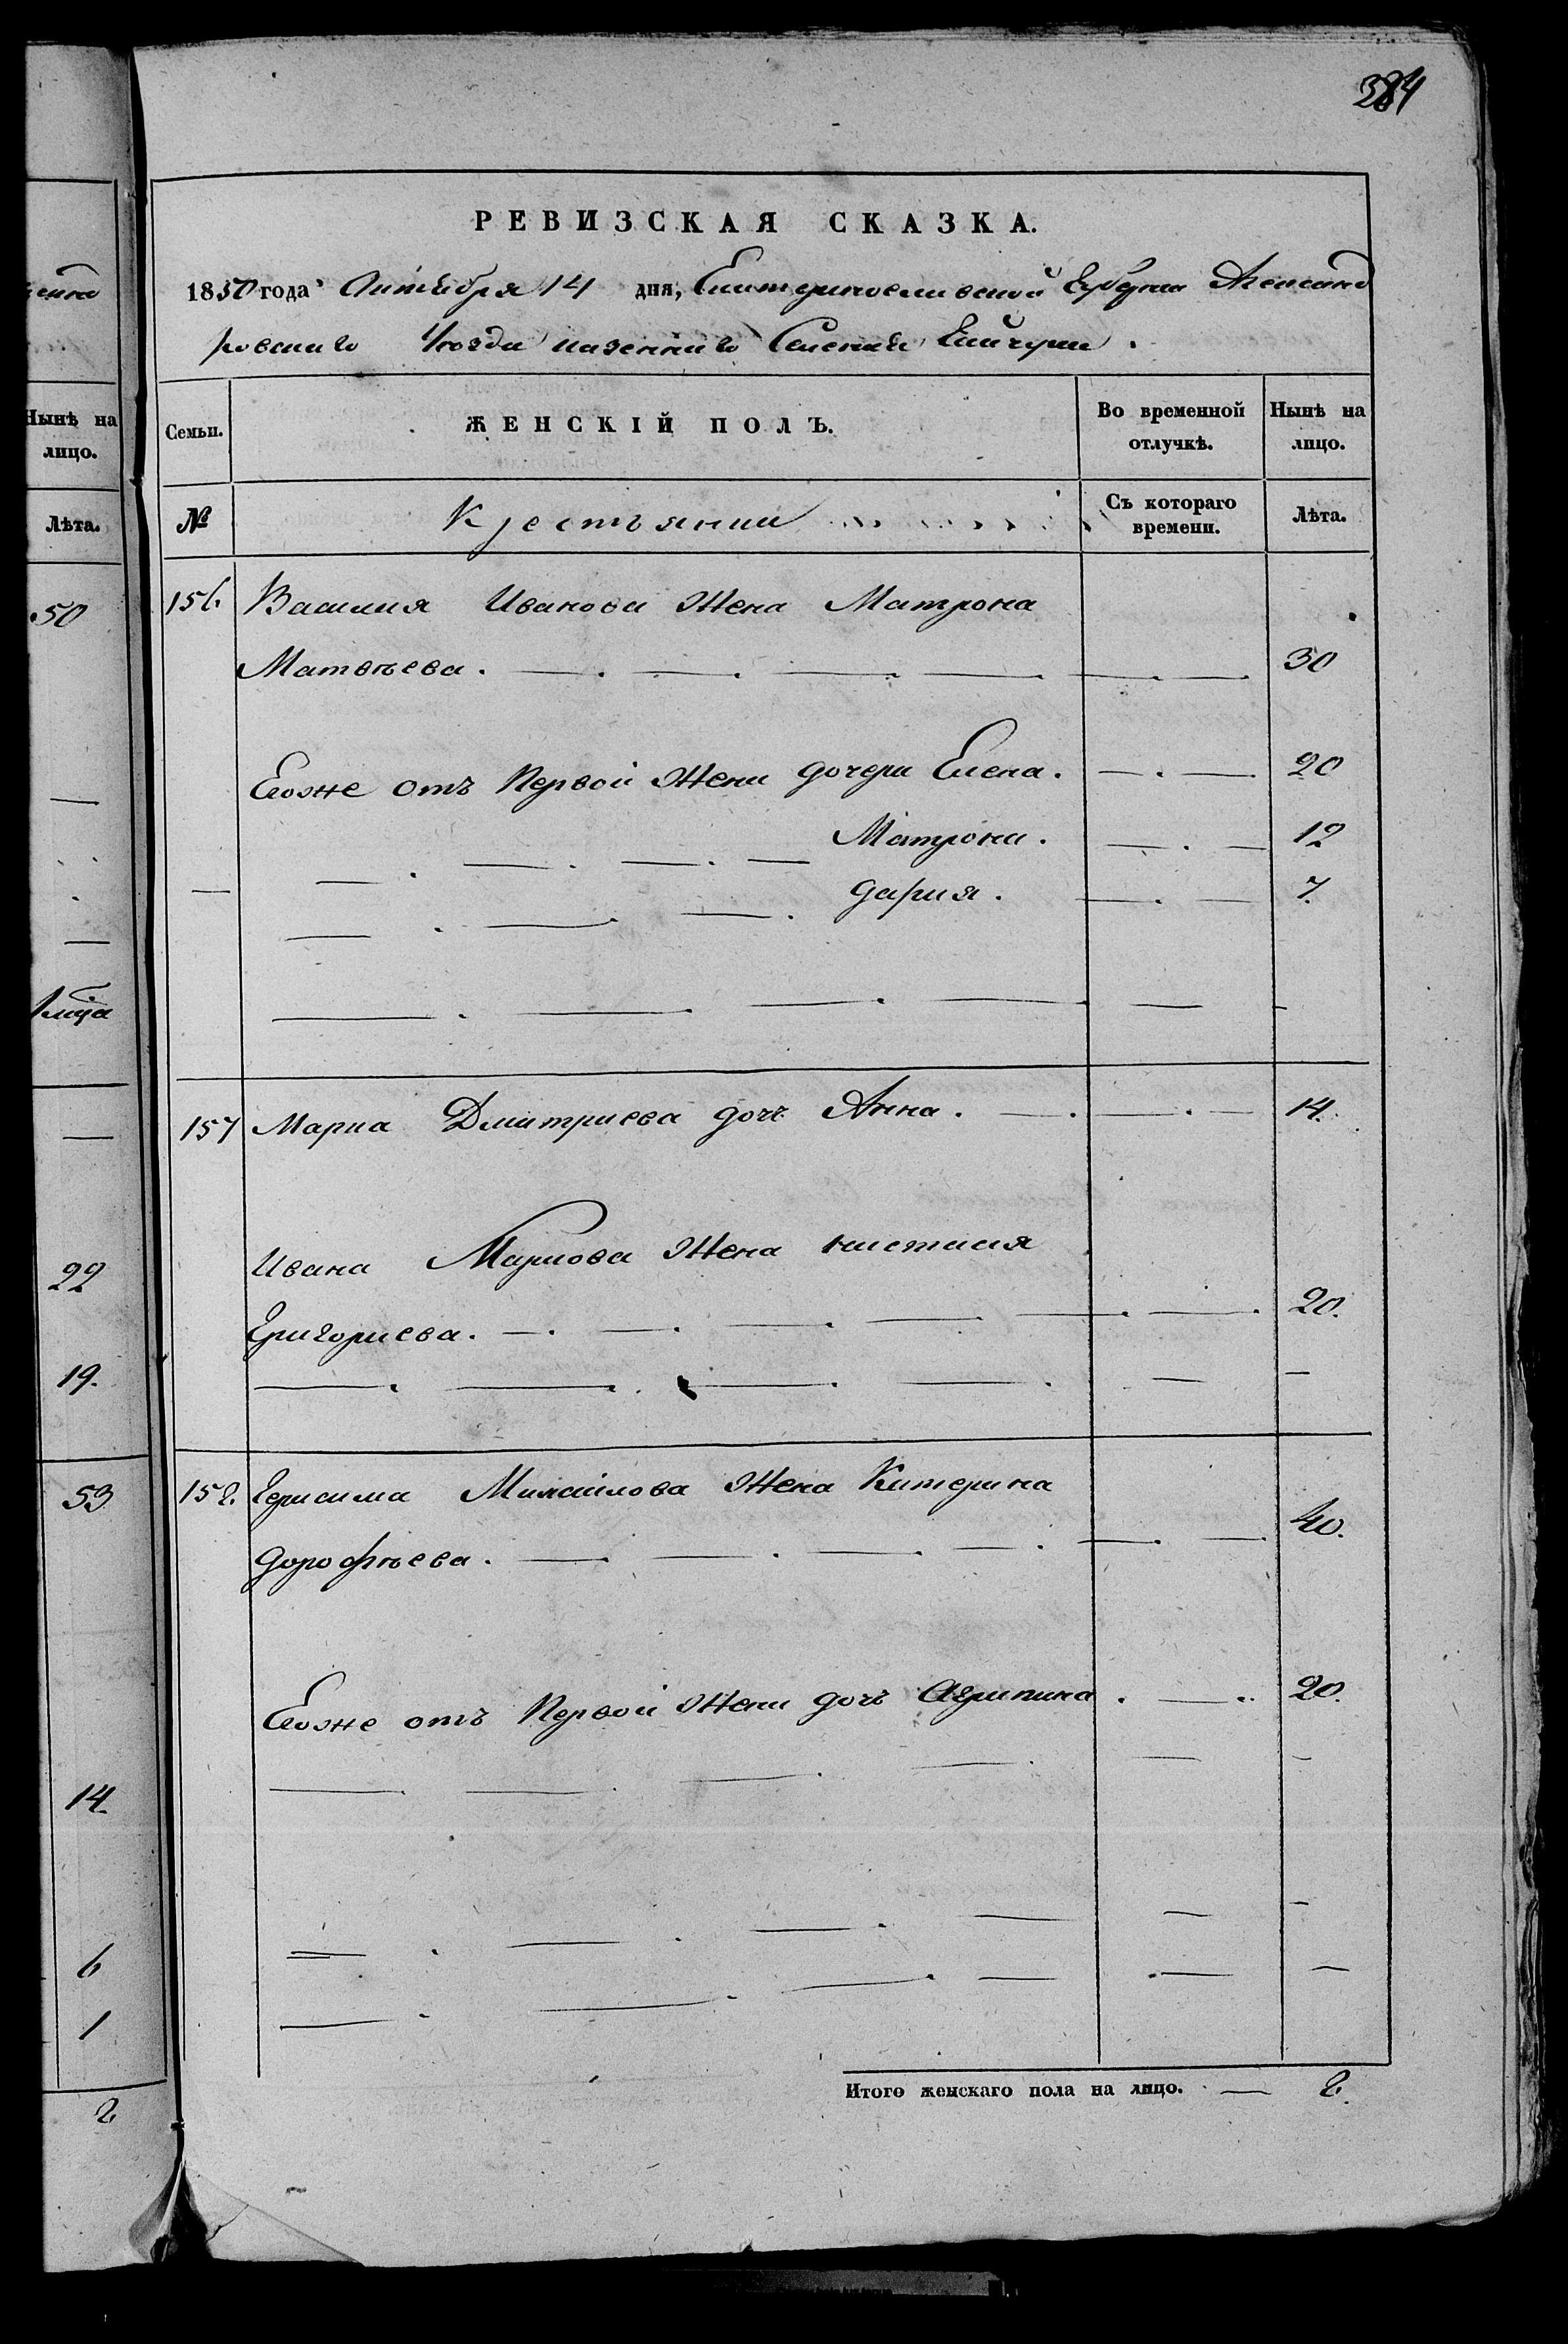 384
РЕВИЗСКАЯ СКАЗКА.
1850 года Октября 14 дня, Екатеринославской Губерни Александ
ровскаго Уезда казеннаго Селения
Семьи. ЖЕНСКІЙ ПОЛЪ. Во временной отлучкѣ. Нынѣ на лицо.
№ Крестьянки Съ котораго времени. Лѣта.
156. Василия Иванова Жена Матрона
Матвѣева. 30
Егоже отъ Первой Жени дочери Елена. 20
Матрона. 12
Дария. 7.
157 Марка Дмитриева дочь Анна. 14.
Ивана Маркова Жена настасия
Григориева. 20.
158. Герасима Михайлова Жена Катерина
Дорофѣева. 40.
Егоже отъ Первой Жени дочь Агрипина. 20.
Итого женскаго пола на лицо. 8.
Нынѣ на
лицо.
Лѣта.
50
22
19.
53
14.
6
1